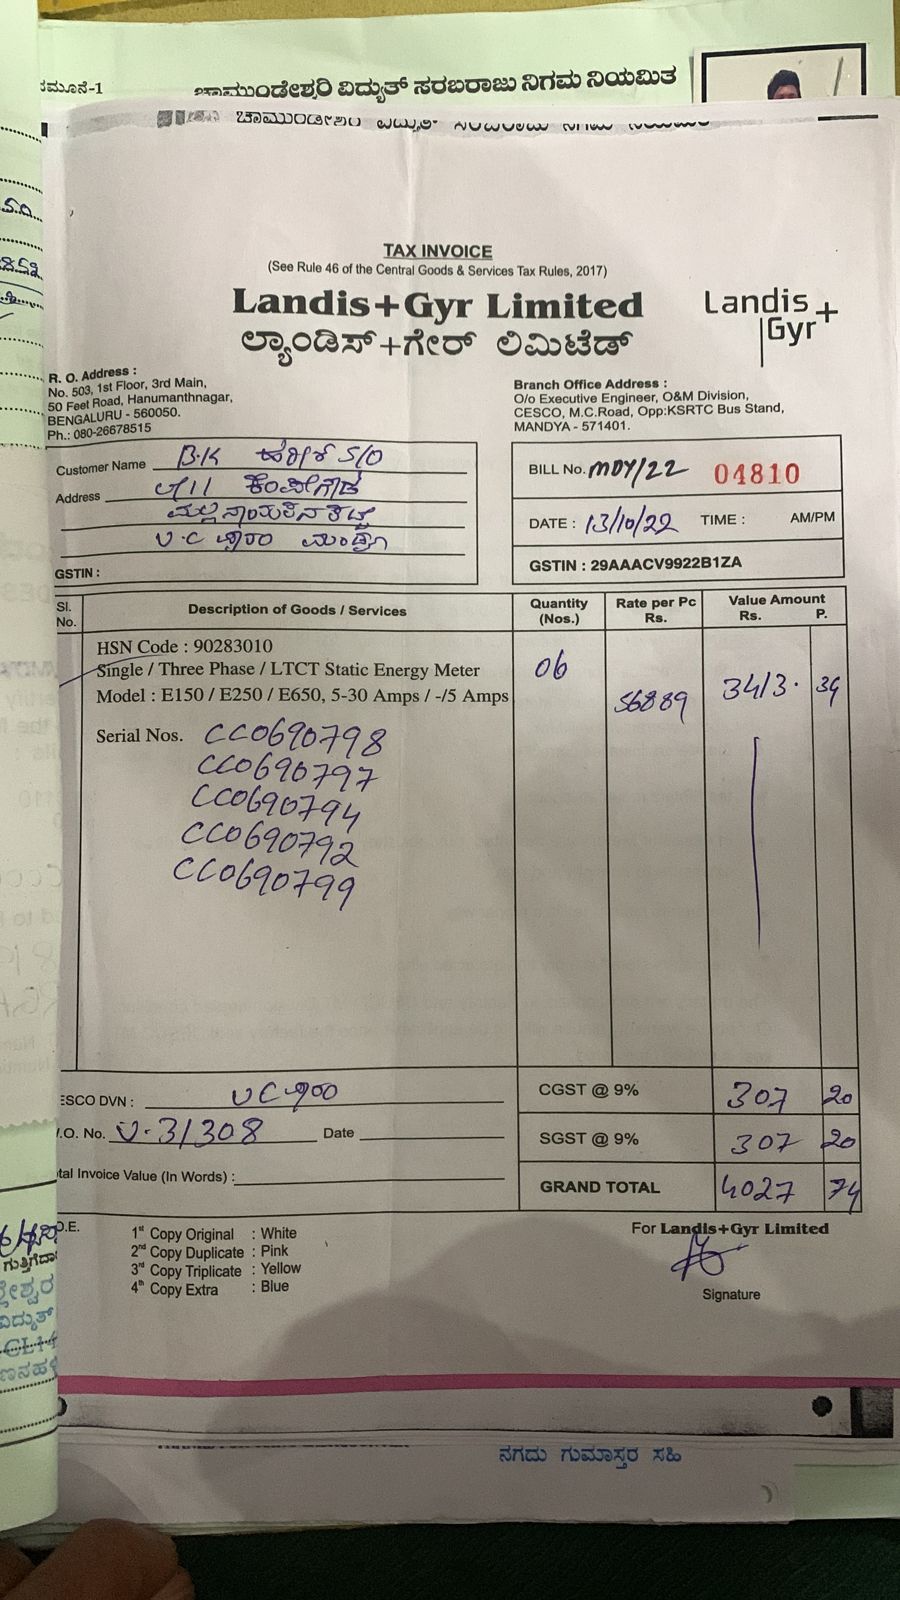 ನಮೂನೆ-1
ಚಾಮುಂಡೇಶ್ವರಿ ವಿದ್ಯುತ್ ಸರಬರಾಜು ನಿಗಮ ನಿಯಮಿತ
TAX INVOICE
(See Rule 46 of the Central Goods & Services Tax Rules, 2017)
Landis+Gyr Limited
ಲ್ಯಾಂಡಿಸ್+ಗೇರ್ ಲಿಮಿಟೆಡ್
Landis+
Gyr
R. O. Address :
No. 503, 1st Floor, 3rd Main,
50 Feet Road, Hanumanthnagar,
BENGALURU - 560050.
Ph.: 080-26678515
Branch Office Address :
O/o Executive Engineer, O&M Division,
CESCO, M.C.Road, Opp:KSRTC Bus Stand,
MANDYA - 571401.
Customer Name B.K S/O
Address
GSTIN :
BILL No. MDY/22 04810
DATE : 13/10/22 TIME : AM/PM
GSTIN : 29AAACV9922B1ZA
Sl. No. Description of Goods / Services Quantity (Nos.) Rate per Pc Rs. Value Amount Rs. P.
HSN Code : 90283010
Single / Three Phase / LTCT Static Energy Meter 06
Model : E150 / E250 / E650, 5-30 Amps / -/5 Amps 56889 3413. 34
Serial Nos. CC0690798
CC0690797
CC0690794
CC0690792
CC0690799
ESCO DVN :
CGST @ 9% 307 20
.O. No. U-31308 Date
SGST @ 9% 307 20
tal Invoice Value (In Words) :
GRAND TOTAL 4027 74
O.E.
1st Copy Original : White
2nd Copy Duplicate : Pink
3rd Copy Triplicate : Yellow
4th Copy Extra : Blue
For Landis+Gyr Limited
Signature
ನಗದು ಗುಮಾಸ್ತರ ಸಹಿ